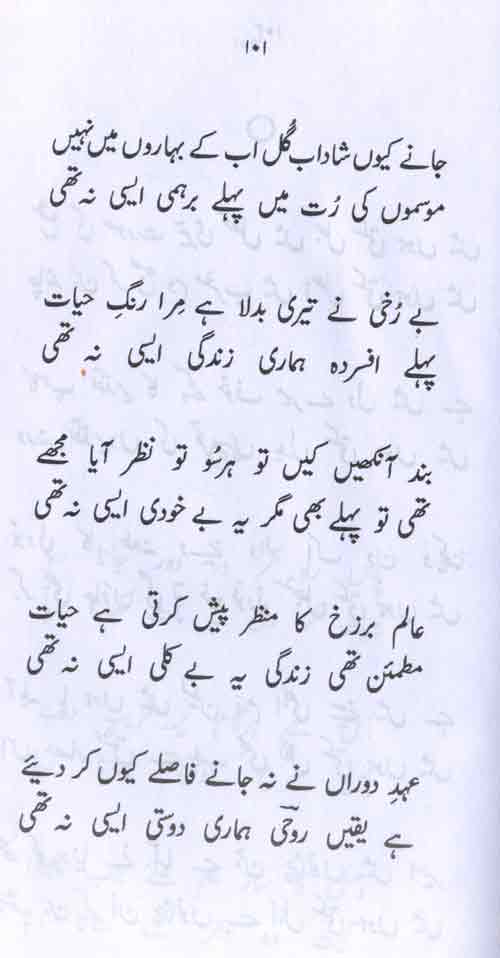 ۱۰۱
جانے کیوں شاداب گُل اب کے بہاروں میں نہیں
موسموں کی رُت میں پہلے برہمی ایسی نہ تھی
بے رُخی نے تیری بدلا ہے مِرا رنگِ حیات
پہلے افسردہ ہماری زندگی ایسی نہ تھی
بند آنکھیں کیں تو ہر سُو تو نظر آیا مجھے
تھی تو پہلے بھی مگر یہ بے خودی ایسی نہ تھی
عالم برزخ کا منظر پیش کرتی ہے حیات
مطمئن تھی زندگی یہ بے کلی ایسی نہ تھی
عہدِ دوراں نے نہ جانے فاصلے کیوں کر دیئے
ہے یقیں روحیؔ ہماری دوستی ایسی نہ تھی